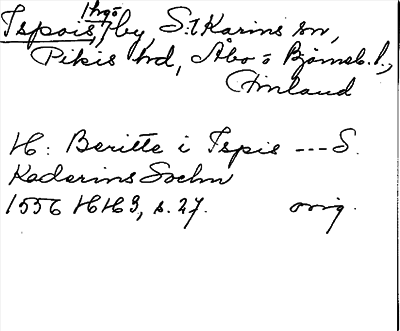 Ispois, by, S:t Karins sn,
Pikis hd, Åbo o Björneb. l.,
Finland
H: Beritte i Ispis --- S.
Kaderins Sochn
1556 HH 3, s. 27. orig.